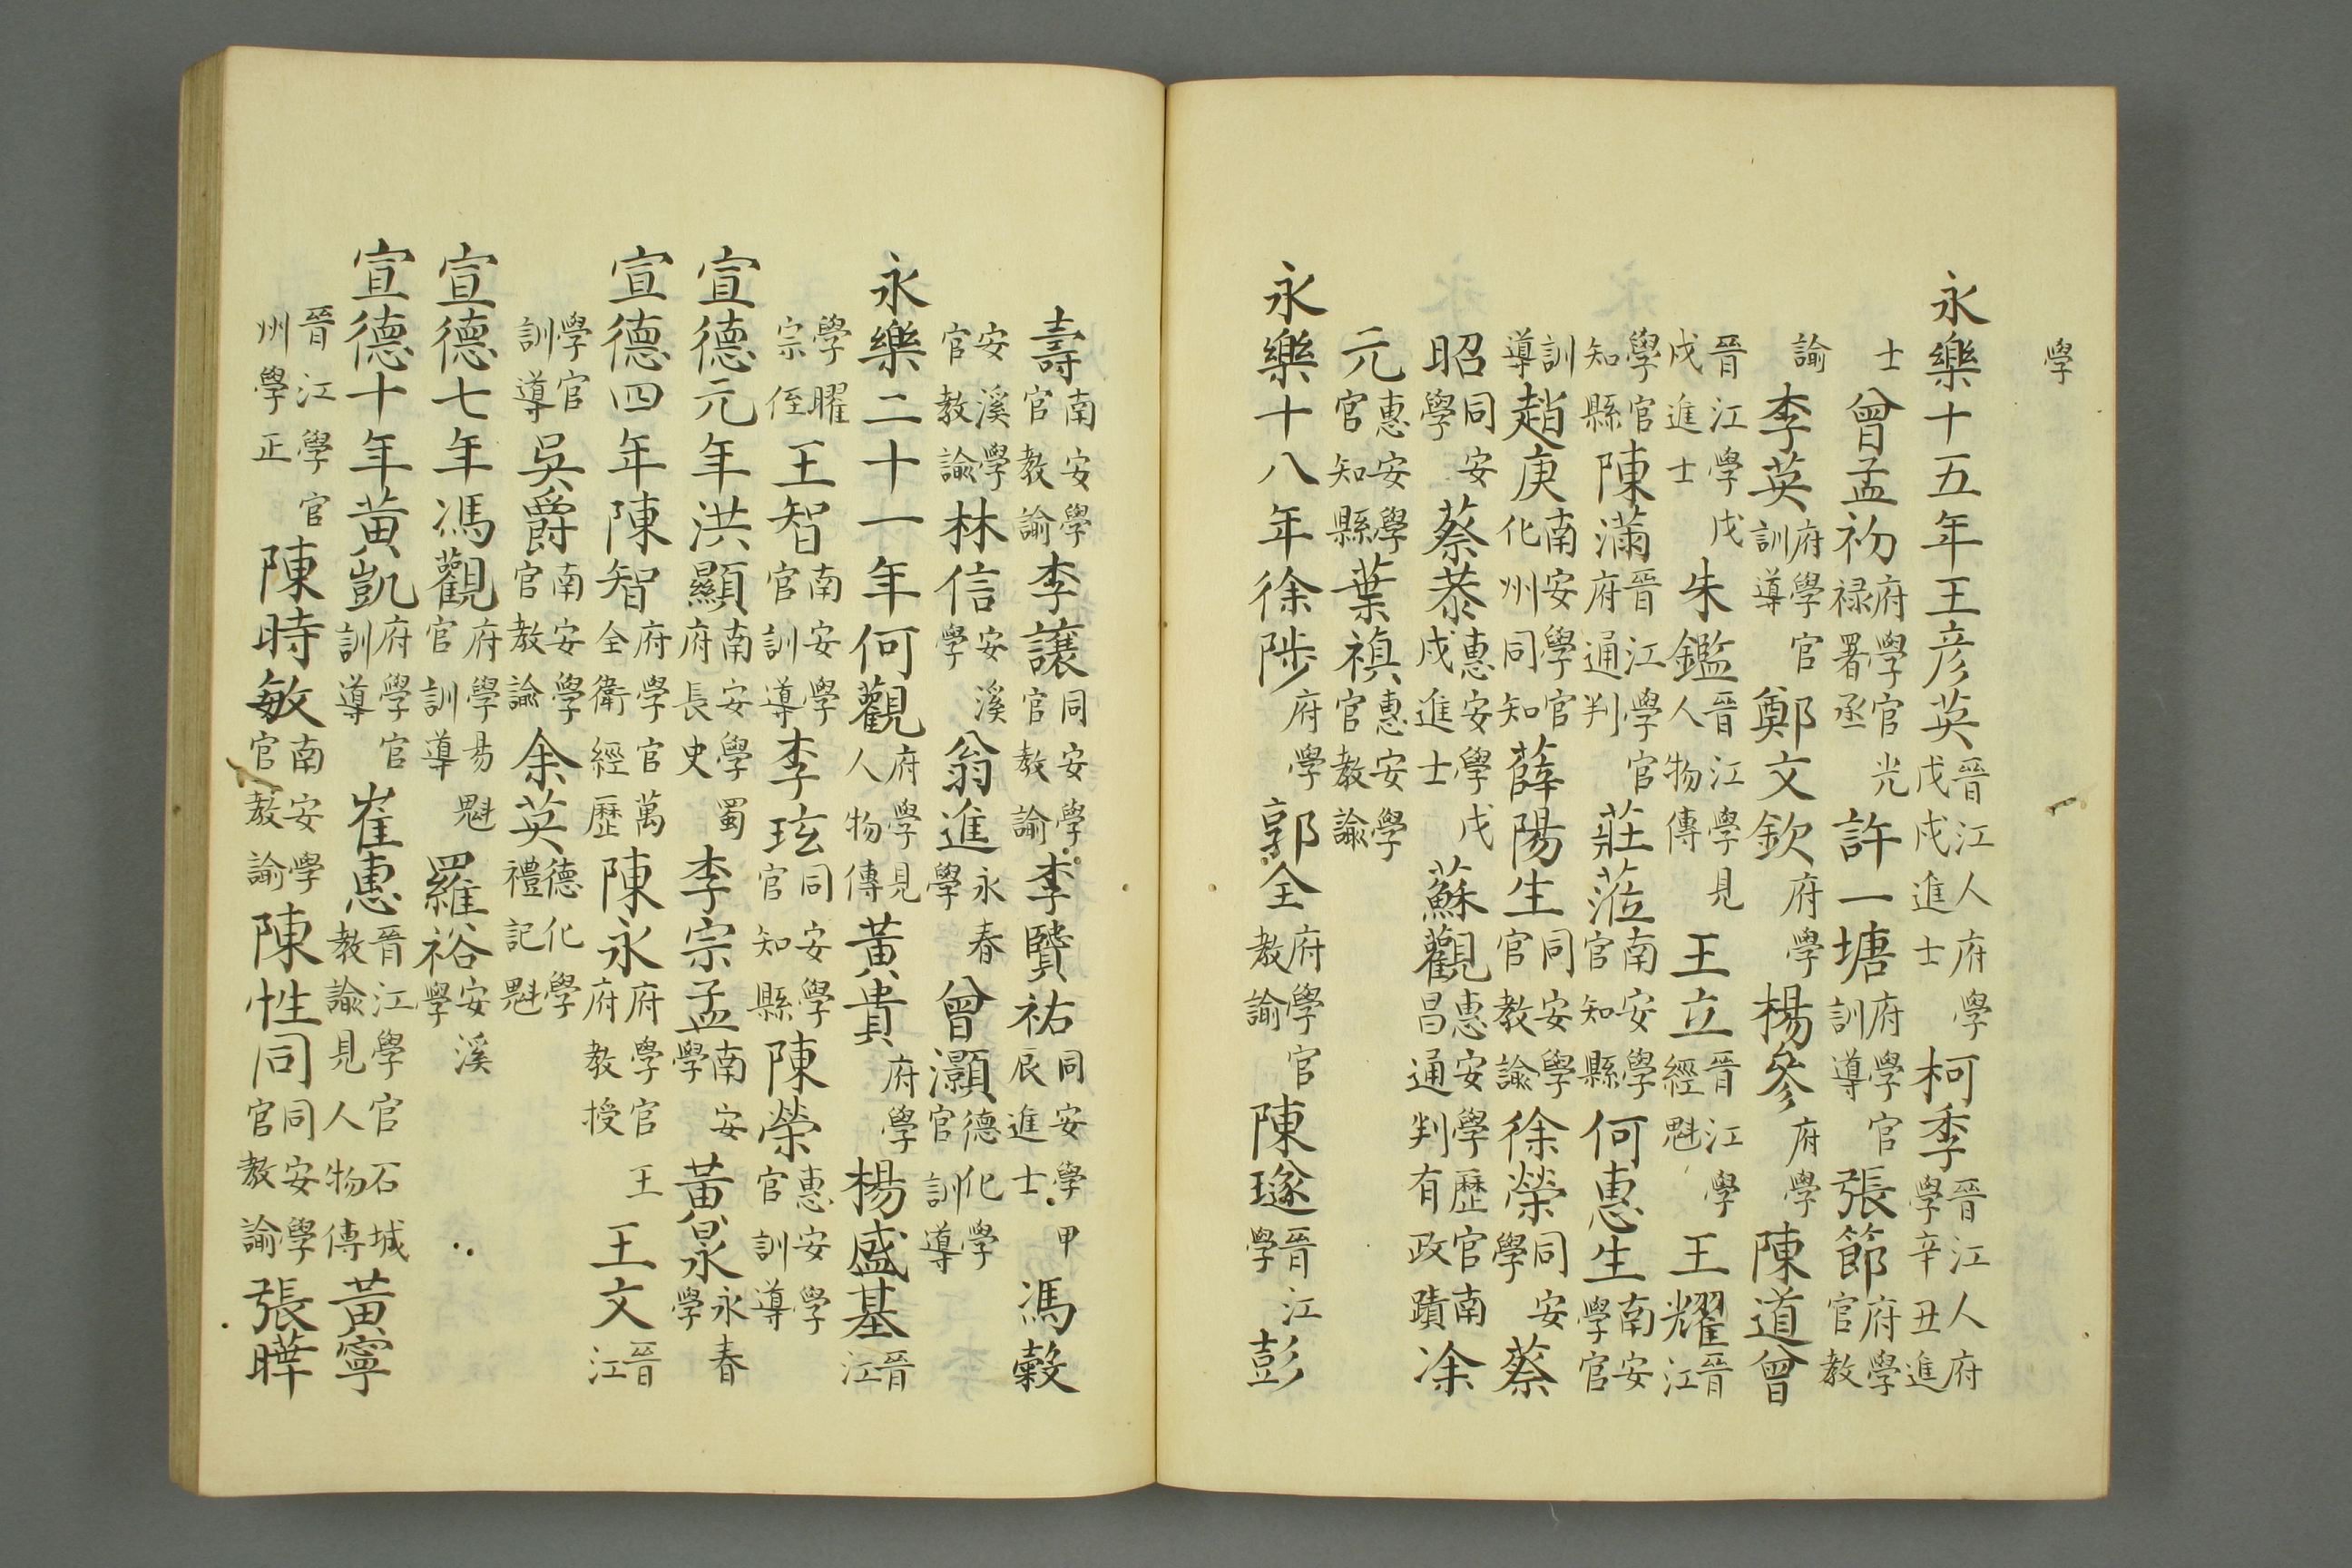 學
永樂十五年王彦英晉江人府學戊戌進士柯季晉江人府學辛丑進
士曾孟礽府學官光禄署丞許一塘府學官訓導張節府學官教
諭李英府學官訓導鄭文欽府學楊參府學陳道曾
晉江學戊戌進士朱鑑晉江學見人物傳王立晉江學經魁王耀晉江
學官知縣陳滿晉江學官府通判莊蒞南安學官知縣何惠生南安學官
訓導趙庚南安學官化州同知薛陽生同安學官教諭徐榮同安學蔡
昭同安學蔡恭惠安學戊戌進士蘇觀惠安學歷官南昌通判有政蹟凃
元惠安學官知縣葉禛惠安學官教諭
永樂十八年徐陟府學郭全府學官教諭陳璲晉江學彭
壽南安學官教諭李讓同安學官教諭李賢祐同安學甲辰進士馮穀
安溪學官教諭林信安溪學翁進永春學曾灝德化學官訓導
永樂二十一年何觀府學見人物傳黃貴府學楊盛基晉江
學曜宗侄王智南安學官訓導李玹同安學官知縣陳榮惠安學官訓導
宣德元年洪顯南安學蜀府長史李宗孟南安學黃泉永春學
宣德四年陳智府學官萬全衛經歷陳永府學官王府教授王文晉江
學官訓導吳爵南安學官教諭余英德化學禮記魁
宣德七年馮觀府學易魁官訓導羅裕安溪學
宣德十年黃凱府學官訓導崔惠晉江學官石城教諭見人物傳黃寧
晉江學官州學正陳時敏南安學官教諭陳性同同安學官教諭張曄